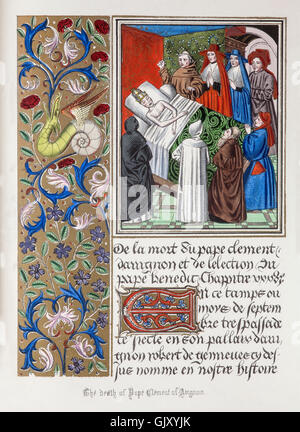 De la mort du pape clement
davignon et de lelection du
pape benedic Chapitre
En ce temps ou
moys de septem
bre trespassa de
ce siecle en son pallais dav
gnon robert de genneues cy des
sus nomme en nostre histoire
The death of Pope Clement of Avignon.
alamy stock photo
GJXYJK
www.alamy.com